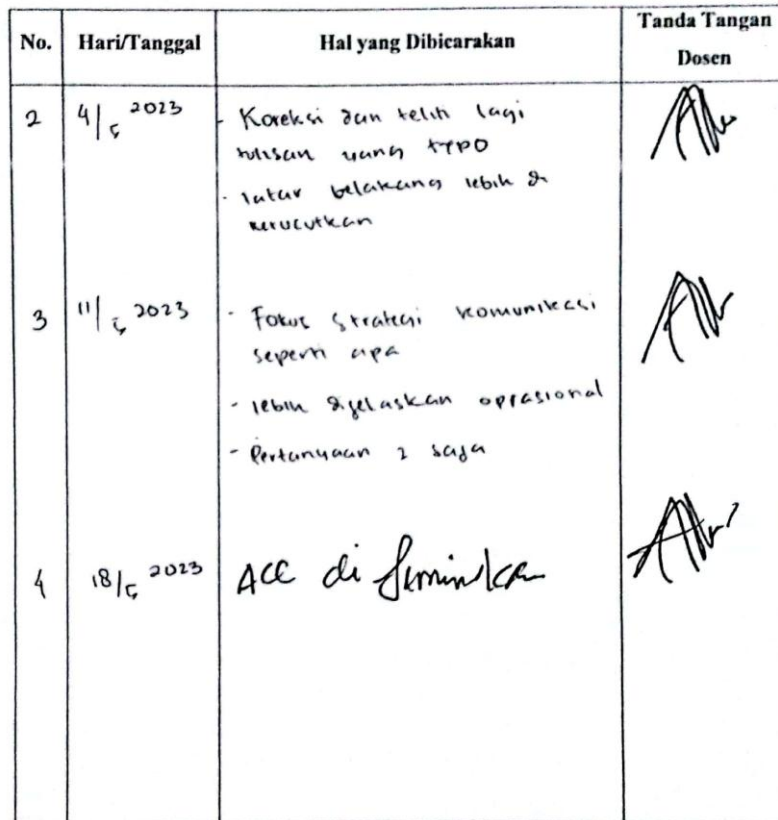 No. Hari/Tanggal Hal yang Dibicarakan Tanda Tangan
Dosen
2 4/5 2023 - Koreksi dan teliti lagi
tulisan yang typo
- latar belakang lebih di
kerucutkan
3 11/5 2023 - Fokus strategi komunikasi
seperti apa
- lebih dijelaskan oprasional
- Pertanyaan 2 saja
4 18/5 2023 ACC di seminarkan